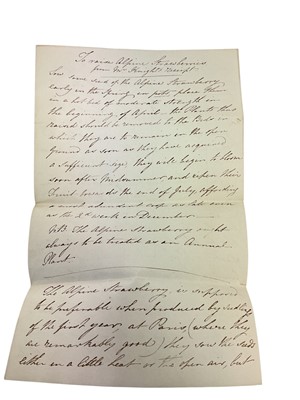 To raise Alpine Strawberries
from Mr Knight's receipt
Sow some seed of the Alpine Strawberry
early in the Spring, in pots place them
in a hot bed of moderate strength in
the beginning of April - the Plants thus
raised should be removed to the Beds in
which they are to remain in the open
Ground as soon as they have acquired
a sufficient age; they will begin to bloom
soon after Midsummer and ripen their
Fruit towards the end of July, affording
a most abundant crop as late even
as the 2d week in December
NB. The Alpine Strawberry ought
always to be treated as an Annual
Plant
The Alpine Strawberry is supposed
to be preferable when produced by Seedlings
of the first year, at Paris (where they
are remarkably good) they sow the seeds
either in a little heat or the open air, but